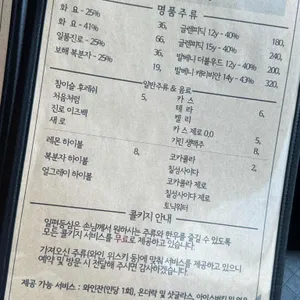 명품주류
화 요 - 25% 36, 글렌피딕 12y - 40% 180,
화 요 - 41% 36, 글렌피딕 15y - 40% 240,
일품진로 - 25% 66, 발베니 더블우드 12y - 40% 200,
보해 복분자 - 25% 36, 발베니 캐리비안 14y - 43% 320,
19,
일반주류 & 음료
참이슬 후레쉬 5, 카 스 6,
처음처럼 테 라
진로 이즈백 켈 리
새 로 카 스 제로 0.0 5,
가린 생맥주 8,
레몬 하이볼 8, 코카콜라 2,
복분자 하이볼 칠성사이다
얼그레이 하이볼 코카콜라 제로
칠성사이다 제로
토닉워터
콜키지 안내
일편등심은 손님께서 원하시는 주류와 한우를 즐길 수 있도록
모든 콜키지 서비스를 무료로 제공하고 있습니다.
가져오신 주류(와인, 위스키 등)에 맞춰 서비스를 제공하고 있으니
예약 및 방문 시 전달해 주시면 감사하겠습니다.
제공 가능 서비스 : 와인잔(인당 1회), 온더락 및 샷글라스, 아이스버킷 및